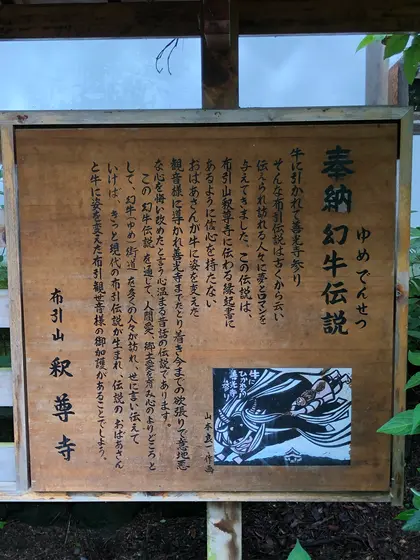 奉納 幻牛伝説
ゆめでんせつ
牛に引かれて善光寺参り
そんな布引伝説は古くから云い
伝えられ訪れる人々に夢とロマンを
与えてきました。この伝説は、
布引山釈尊寺に伝わる縁起書に
あるように信心を持たない
おばあさんが牛に姿を変えた
観音様に導かれ善光寺までたどり着き今までの欲張りで意地悪
な心を悔い改めたと言う心温まる昔話の伝説であります。
この幻牛伝説を通して、人間愛、郷土愛を育み心のよりどころと
して、幻牛(ゆめ)街道を多くの人々が訪れ、世に言い伝えて
いけば、きっと現代の布引伝説が生まれ、伝説のおばあさん
と牛に姿を変えた布引観世音様の御加護があることでしょう。
布引山 釈尊寺
牛に
ひかれて
善光寺
山本良一作画